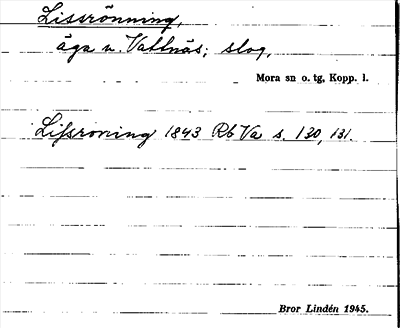 Lissrönning,
äga n. Vattnäs; slog,
Mora sn o. tg, Kopp. l.
Lissroning 1843 Rb Va s. 130, 131.
Bror Lindén 1945.